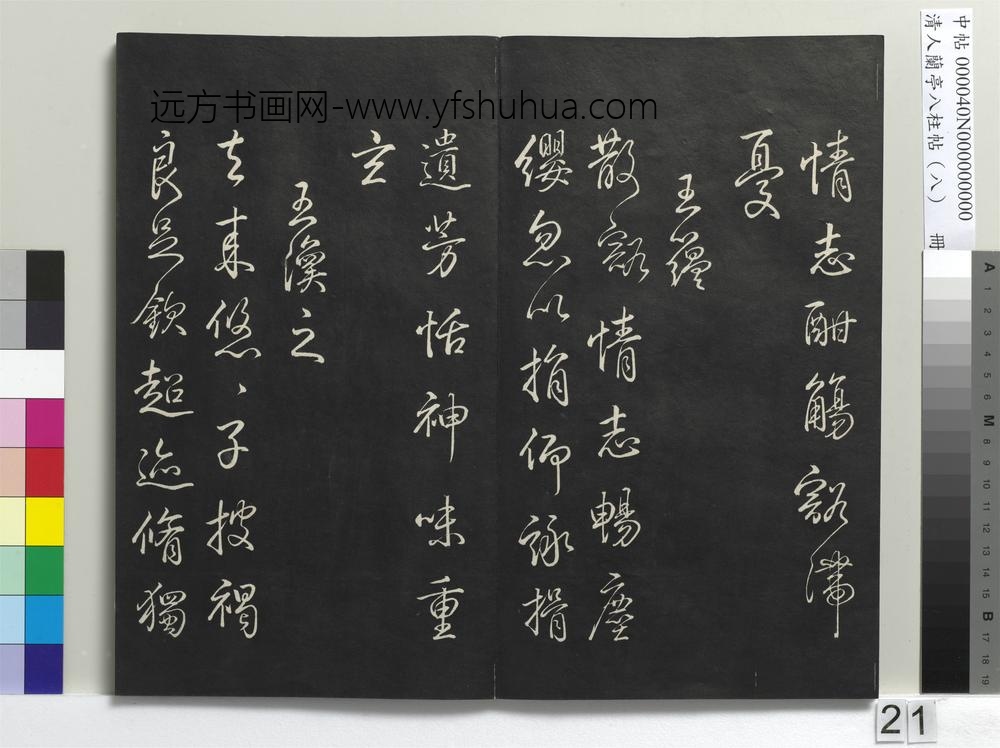 中帖 000040N000000000
清人蘭亭八柱帖（八） 冊
远方书画网-www.yfshuhua.com
情志酣觴豁滯
憂
王蘊
散豁情志暢塵
纓忽以捐仰詠挹
遺芳恬神味重
玄
王渙之
去来悠〻子披褐
良足欽超迹脩獨
21
A
1
2
3
4
5
6
M
8
9
10
11
12
13
14
15
B
17
18
19